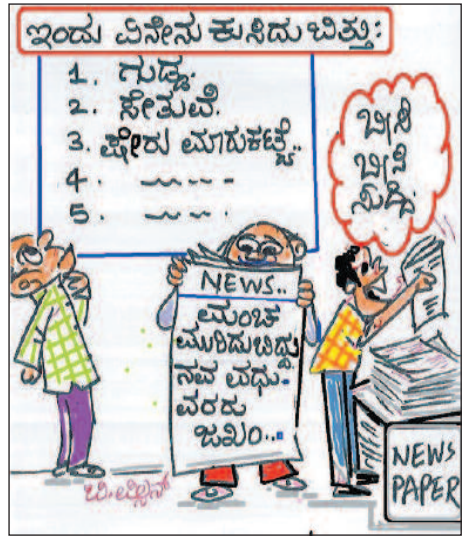 ಇಂದು ಏನೇನು ಕುಸಿದು ಬಿತ್ತು:
1. ಗುಡ್ಡ.
2. ಸೇತುವೆ.
3. ಷೇರು ಮಾರುಕಟ್ಟೆ..
4.
5.
ಬಿಸಿ
ಬಿಸಿ
ಸುದ್ದಿ
NEWS..
ಮಂಚ
ಮುರಿದುಬಿದ್ದು
ನವ ವಧು-
ವರರು
ಜಖಂ...
NEWS
PAPER